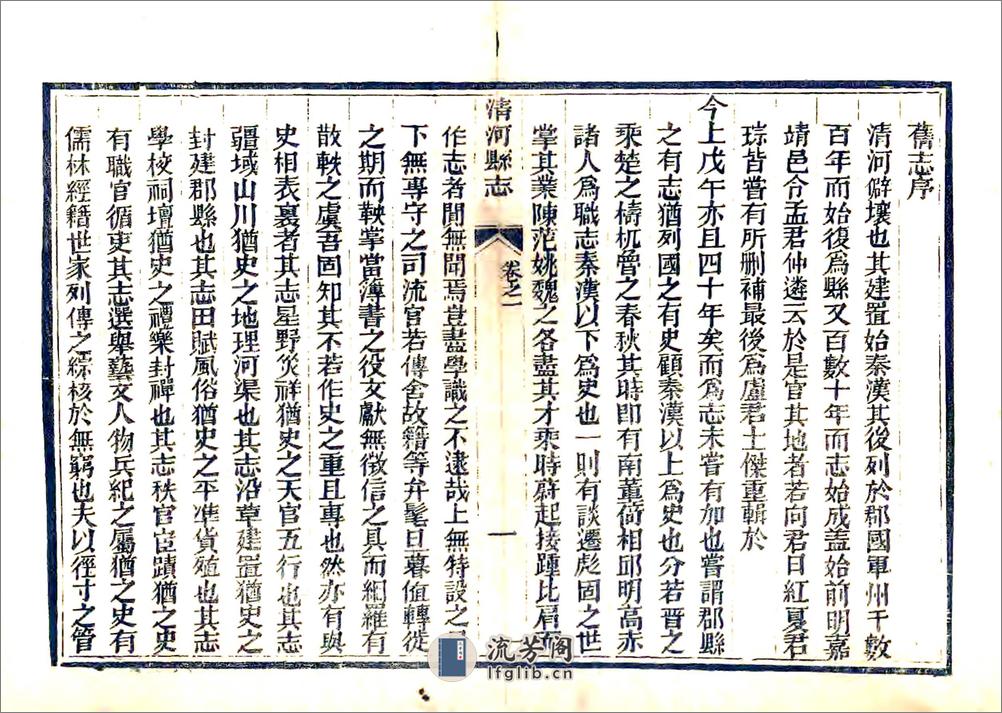 舊志序
清河僻壤也其建置始秦漢其後列於郡國軍州千數
百年而始復爲縣又百數十年而志始成蓋始前明嘉
靖邑令孟君仲遴云於是官其地者若向君日紅夏君
琮皆嘗有所刪補最後爲盧君士傑重輯於
今上戊午亦且四十年矣而爲志未嘗有加也嘗謂郡縣
之有志猶列國之有史顧秦漢以上爲史也分若晋之
乘楚之檮杌曾之春秋其時即有南董荀相邱明高赤
諸人爲職志秦漢以下爲史也一則有談遷彪固之世
掌其業陳范姚魏之各盡其才乘時蔚起接踵比肩而
清河縣志
卷之一
一
作志者閒無聞焉豈盡學識之不逮哉上無特設之
下無專守之司流官若傳舍故籍等弁髦旦暮値轉徙
之期而鞅掌當簿書之役文獻無徵信之具而網羅有
散軼之虞吾固知其不若作史之重且專也然亦有與
史相表裏者其志星野災祥猶史之天官五行也其志
疆域山川猶史之地理河渠也其志沿革建置猶史之
封建郡縣也其志田賦風俗猶史之平準貨殖也其志
學校祠壇猶史之禮樂封禪也其志秩官宦蹟猶之史
有職官循吏其志選舉藝文人物兵紀之屬猶之史有
儒林經籍世家列傳之綜核於無窮也夫以徑寸之管
流芳閣
lfglib.cn